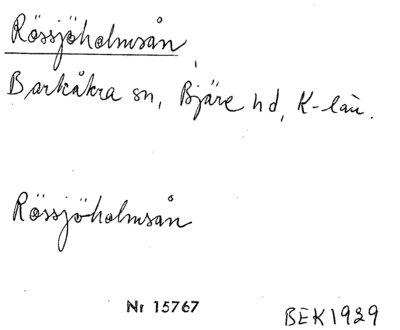 Rössjöholmsån
Barkåkra sn, Bjäre hd, K-län.
Rössjöholmsån
Nr 15767
BEK 1929